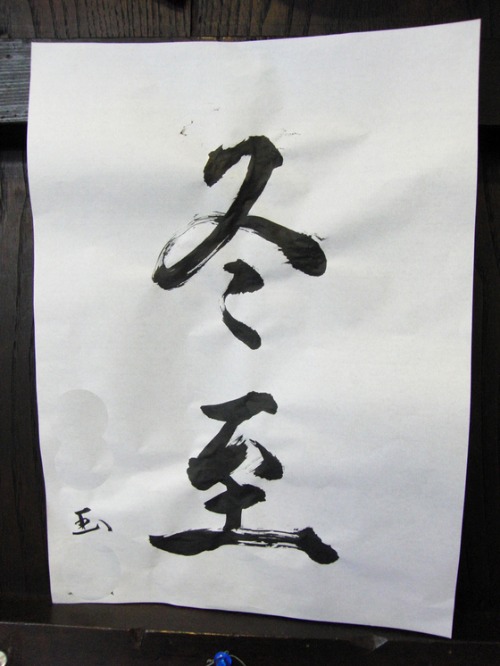 冬至
玉